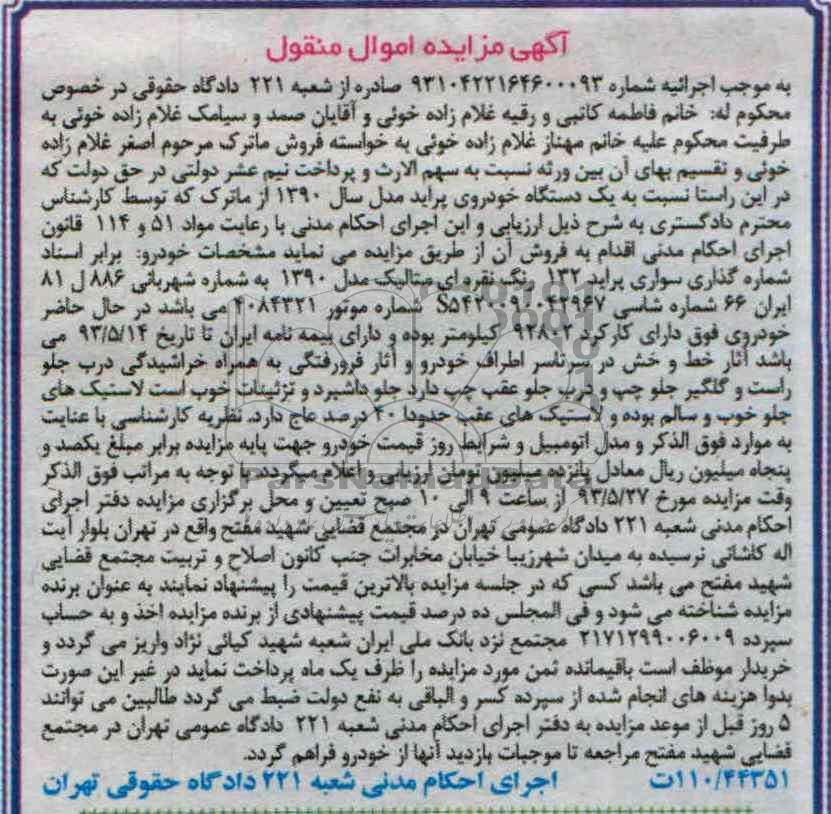 آگهی مزایده اموال منقول
به موجب اجرائیه شماره ۹۳۱۰۴۲۲۱۶۴۶۰۰۰۹۳ صادره از شعبه ۲۲۱ دادگاه حقوقی در خصوص
محکوم له: خانم فاطمه کاتبی و رقیه غلام زاده خوئی و آقایان صمد و سیامک غلام زاده خوئی به
طرفیت محکوم علیه خانم مهناز غلام زاده خوئی به خواسته فروش ماترک مرحوم اصغر غلام زاده
خوئی و تقسیم بهای آن بین ورثه نسبت به سهم الارث و پرداخت نیم عشر دولتی در حق دولت که
در این راستا نسبت به یک دستگاه خودروی پراید مدل سال ۱۳۹۰ از ماترک که توسط کارشناس
محترم دادگستری به شرح ذیل ارزیابی و این اجرای احکام مدنی با رعایت مواد ۵۱ و ۱۱۴ قانون
اجرای احکام مدنی اقدام به فروش آن از طریق مزایده می نماید مشخصات خودرو: برابر اسناد
شماره گذاری سواری پراید ۱۳۲ رنگ نقره ای متالیک مدل ۱۳۹۰ به شماره شهربانی ۸۸۶ ل ۸۱
ایران ۶۶ شماره شاسی شماره موتور ۴۰۸۴۳۲۱ می باشد در حال حاضر
خودروی فوق دارای کارکرد ۹۲۸۰۲ کیلومتر بوده و دارای بیمه نامه ایران تا تاریخ ۹۳/۵/۱۴ می
باشد آثار خط و خش در سرتاسر اطراف خودرو و آثار فرورفتگی به همراه خراشیدگی درب جلو
راست و گلگیر جلو چپ و درب جلو عقب چپ دارد جلو داشبرد و تزئینات خوب است لاستیک های
جلو خوب و سالم بوده و لاستیک های عقب حدودا ۴۰ درصد عاج دارد. نظریه کارشناسی با عنایت
به موارد فوق الذکر و مدل اتومبیل و شرایط روز قیمت خودرو جهت پایه مزایده برابر مبلغ یکصد و
پنجاه میلیون ریال معادل پانزده میلیون تومان ارزیابی و اعلام میگردد با توجه به مراتب فوق الذکر
وقت مزایده مورخ ۹۳/۵/۲۷ از ساعت ۹ الی ۱۰ صبح تعیین و محل برگزاری مزایده دفتر اجرای
احکام مدنی شعبه ۲۲۱ دادگاه عمومی تهران در مجتمع قضایی شهید مفتح واقع در تهران بلوار آیت
اله کاشانی نرسیده به میدان شهرزیبا خیابان مخابرات جنب کانون اصلاح و تربیت مجتمع قضایی
شهید مفتح می باشد کسی که در جلسه مزایده بالاترین قیمت را پیشنهاد نمایند به عنوان برنده
مزایده شناخته می شود و فی المجلس ده درصد قیمت پیشنهادی از برنده مزایده اخذ و به حساب
سپرده ۲۱۷۱۲۹۹۰۰۶۰۰۹ مجتمع نزد بانک ملی ایران شعبه شهید کیائی نژاد واریز می گردد و
خریدار موظف است باقیمانده ثمن مورد مزایده را ظرف یک ماه پرداخت نماید در غیر این صورت
بدوا هزینه های انجام شده از سپرده کسر و الباقی به نفع دولت ضبط می گردد طالبین می توانند
۵ روز قبل از موعد مزایده به دفتر اجرای احکام مدنی شعبه ۲۲۱ دادگاه عمومی تهران در مجتمع
قضایی شهید مفتح مراجعه تا موجبات بازدید آنها از خودرو فراهم گردد.
۱۱۰/۴۴۳۵۱ت اجرای احکام مدنی شعبه ۲۲۱ دادگاه حقوقی تهران